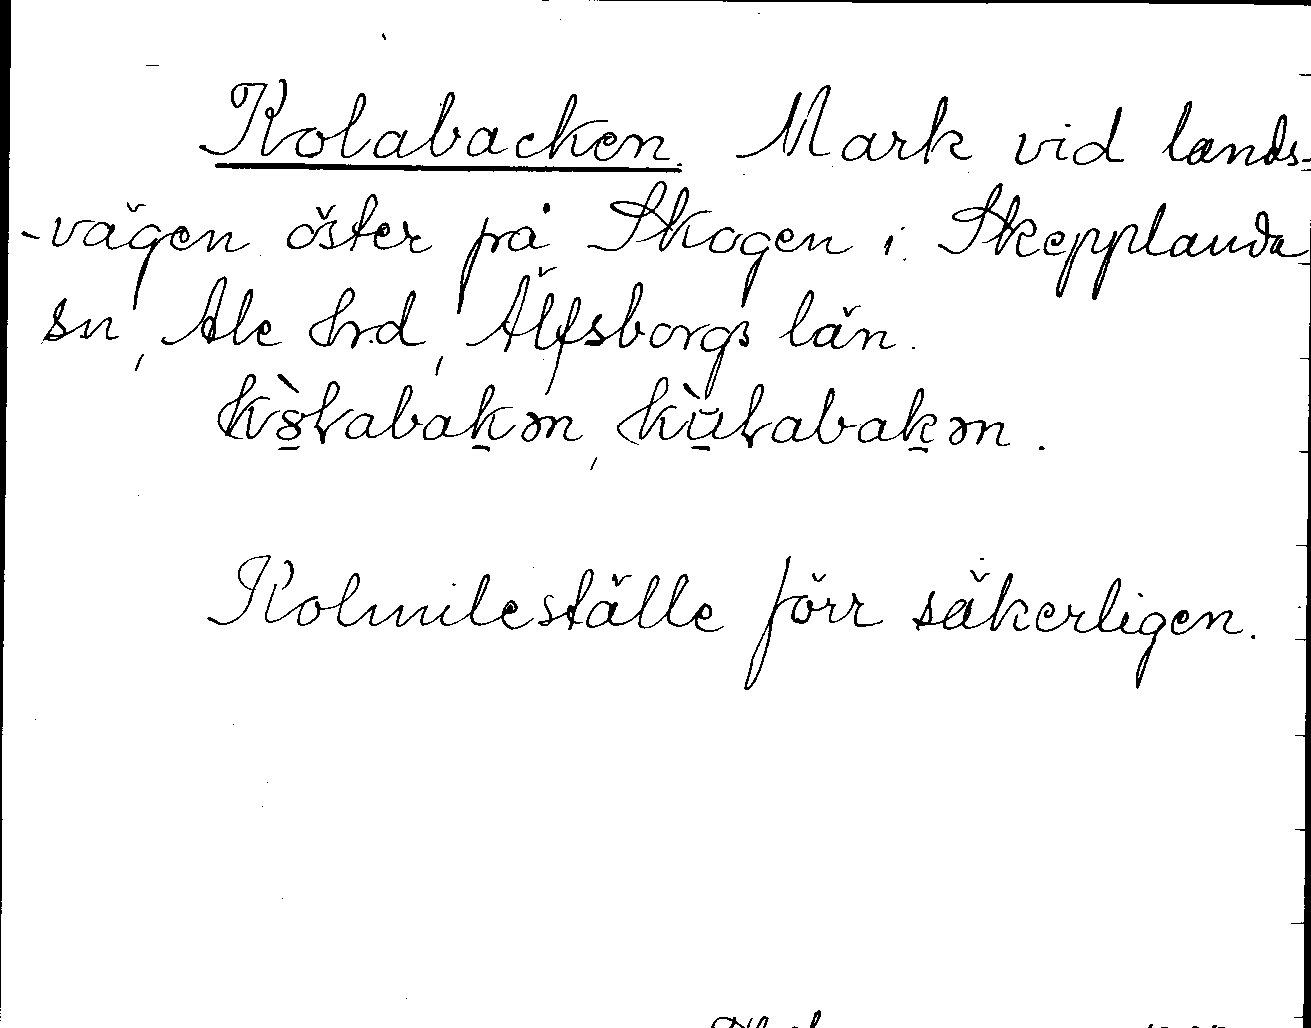 Kolabacken. Mark vid lands-
-vägen öster på Skogen i Skepplanda
sn, Ale hrd, Älfsborgs län.
kòlabakən, kùlabakən.
Kolmileställe förr säkerligen.